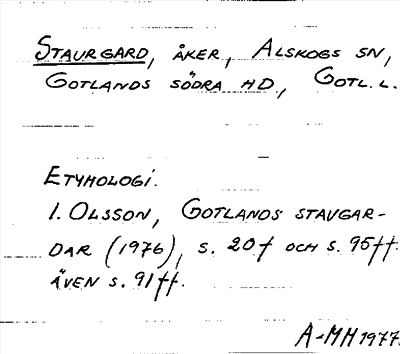 STAURGARD, ÅKER, ALSKOGS SN,
GOTLANDS SÖDRA HD, GOTL. L.
ETYMOLOGI.
I. OLSSON, GOTLANDS STAVGAR-
DAR (1976), S. 20f OCH S. 95ff.
ÄVEN S. 91ff.
A-MH 1977